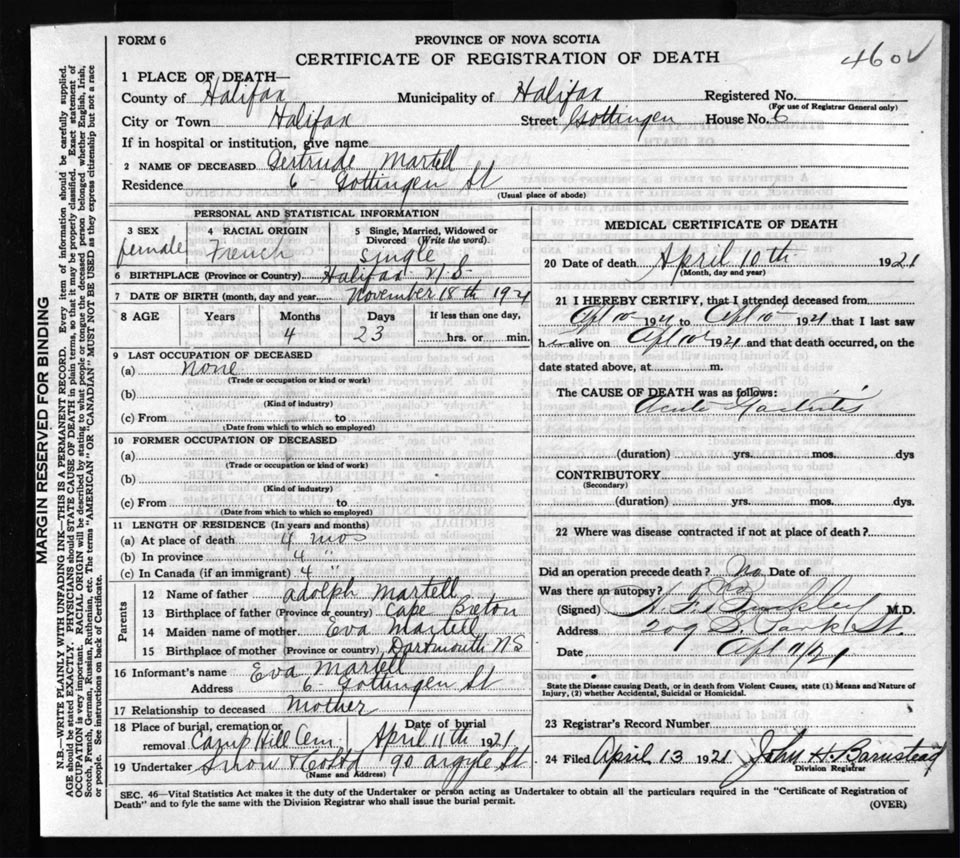 FORM 6
PROVINCE OF NOVA SCOTIA
CERTIFICATE OF REGISTRATION OF DEATH
460
1 PLACE OF DEATH—
County of Halifax Municipality of Halifax Registered No.
(For use of Registrar General only)
City or Town Halifax Street Gottingen House No. 6
If in hospital or institution, give name
2 NAME OF DECEASED Gertrude Martell
Residence 6 Gottingen St
(Usual place of abode)
PERSONAL AND STATISTICAL INFORMATION
3 SEX 4 RACIAL ORIGIN 5 Single, Married, Widowed or
Divorced (Write the word).
female French Single
6 BIRTHPLACE (Province or Country) Halifax N.S
7 DATE OF BIRTH (month, day and year November 18th 192
8 AGE Years Months Days If less than one day,
4 23 hrs. or min.
9 LAST OCCUPATION OF DECEASED
(a) None
(Trade or occupation or kind or work)
(b)
(Kind of industry)
(c) From to
(Date from which to which so employed)
10 FORMER OCCUPATION OF DECEASED
(a)
(Trade or occupation or kind of work)
(b)
(Kind of industry)
(c) From to
(Date from which to which so employed)
11 LENGTH OF RESIDENCE (In years and months)
(a) At place of death 4 mos
(b) In province 4 "
(c) In Canada (if an immigrant) 4 "
Parents
12 Name of father adolph Martell
13 Birthplace of father (Province or country) Cape Breton
14 Maiden name of mother Eva Martell
15 Birthplace of mother (Province or country) Dartmouth NS
16 Informant's name Eva Martell
Address 6 Gottingen St
17 Relationship to deceased Mother
18 Place of burial, cremation or Date of burial
removal Camp Hill Cem. April 11th 1921
19 Undertaker Snow & 90 Argyle St
(Name and Address)
MEDICAL CERTIFICATE OF DEATH
20 Date of death April 10th 1921
(Month, day and year)
21 I HEREBY CERTIFY, that I attended deceased from
Apl 10 1921 to Apl 10 1921 that I last saw
h alive on Apl 10 1921 and that death occurred, on the
date stated above, at m.
The CAUSE OF DEATH was as follows:
Acute Gastritis
(duration) yrs. mos. dys
CONTRIBUTORY
(Secondary)
(duration) yrs. mos. dys.
22 Where was disease contracted if not at place of death?
Did an operation precede death? No Date of
Was there an autopsy? No
(Signed) M.D.
Address 209 Park St.
Date Apl 11/21
State the Disease causing Death, or in death from Violent Causes, state (1) Means and Nature of
Injury, (2) whether Accidental, Suicidal or Homicidal.
23 Registrar's Record Number
24 Filed April 13 1921 John H. Barnstead
Division Registrar
SEC. 46—Vital Statistics Act makes it the duty of the Undertaker or person acting as Undertaker to obtain all the particulars required in the "Certificate of Registration of
Death" and to fyle the same with the Division Registrar who shall issue the burial permit.
(OVER)
MARGIN RESERVED FOR BINDING
N.B.—WRITE PLAINLY WITH UNFADING INK—THIS IS A PERMANENT RECORD. Every item of information should be carefully supplied.
AGE should be stated EXACTLY. PHYSICIANS should STATE CAUSE OF DEATH in plain terms, so that it may be properly classified. Exact statement of
OCCUPATION is very important. RACIAL ORIGIN will be described by stating to what people or tongue the deceased person belonged, whether English, Irish,
Scotch, French, German, Russian, Ruthenian, etc. The terms "AMERICAN" OR "CANADIAN" MUST NOT BE USED as they express citizenship but not a race
or people. See instructions on back of Certificate.